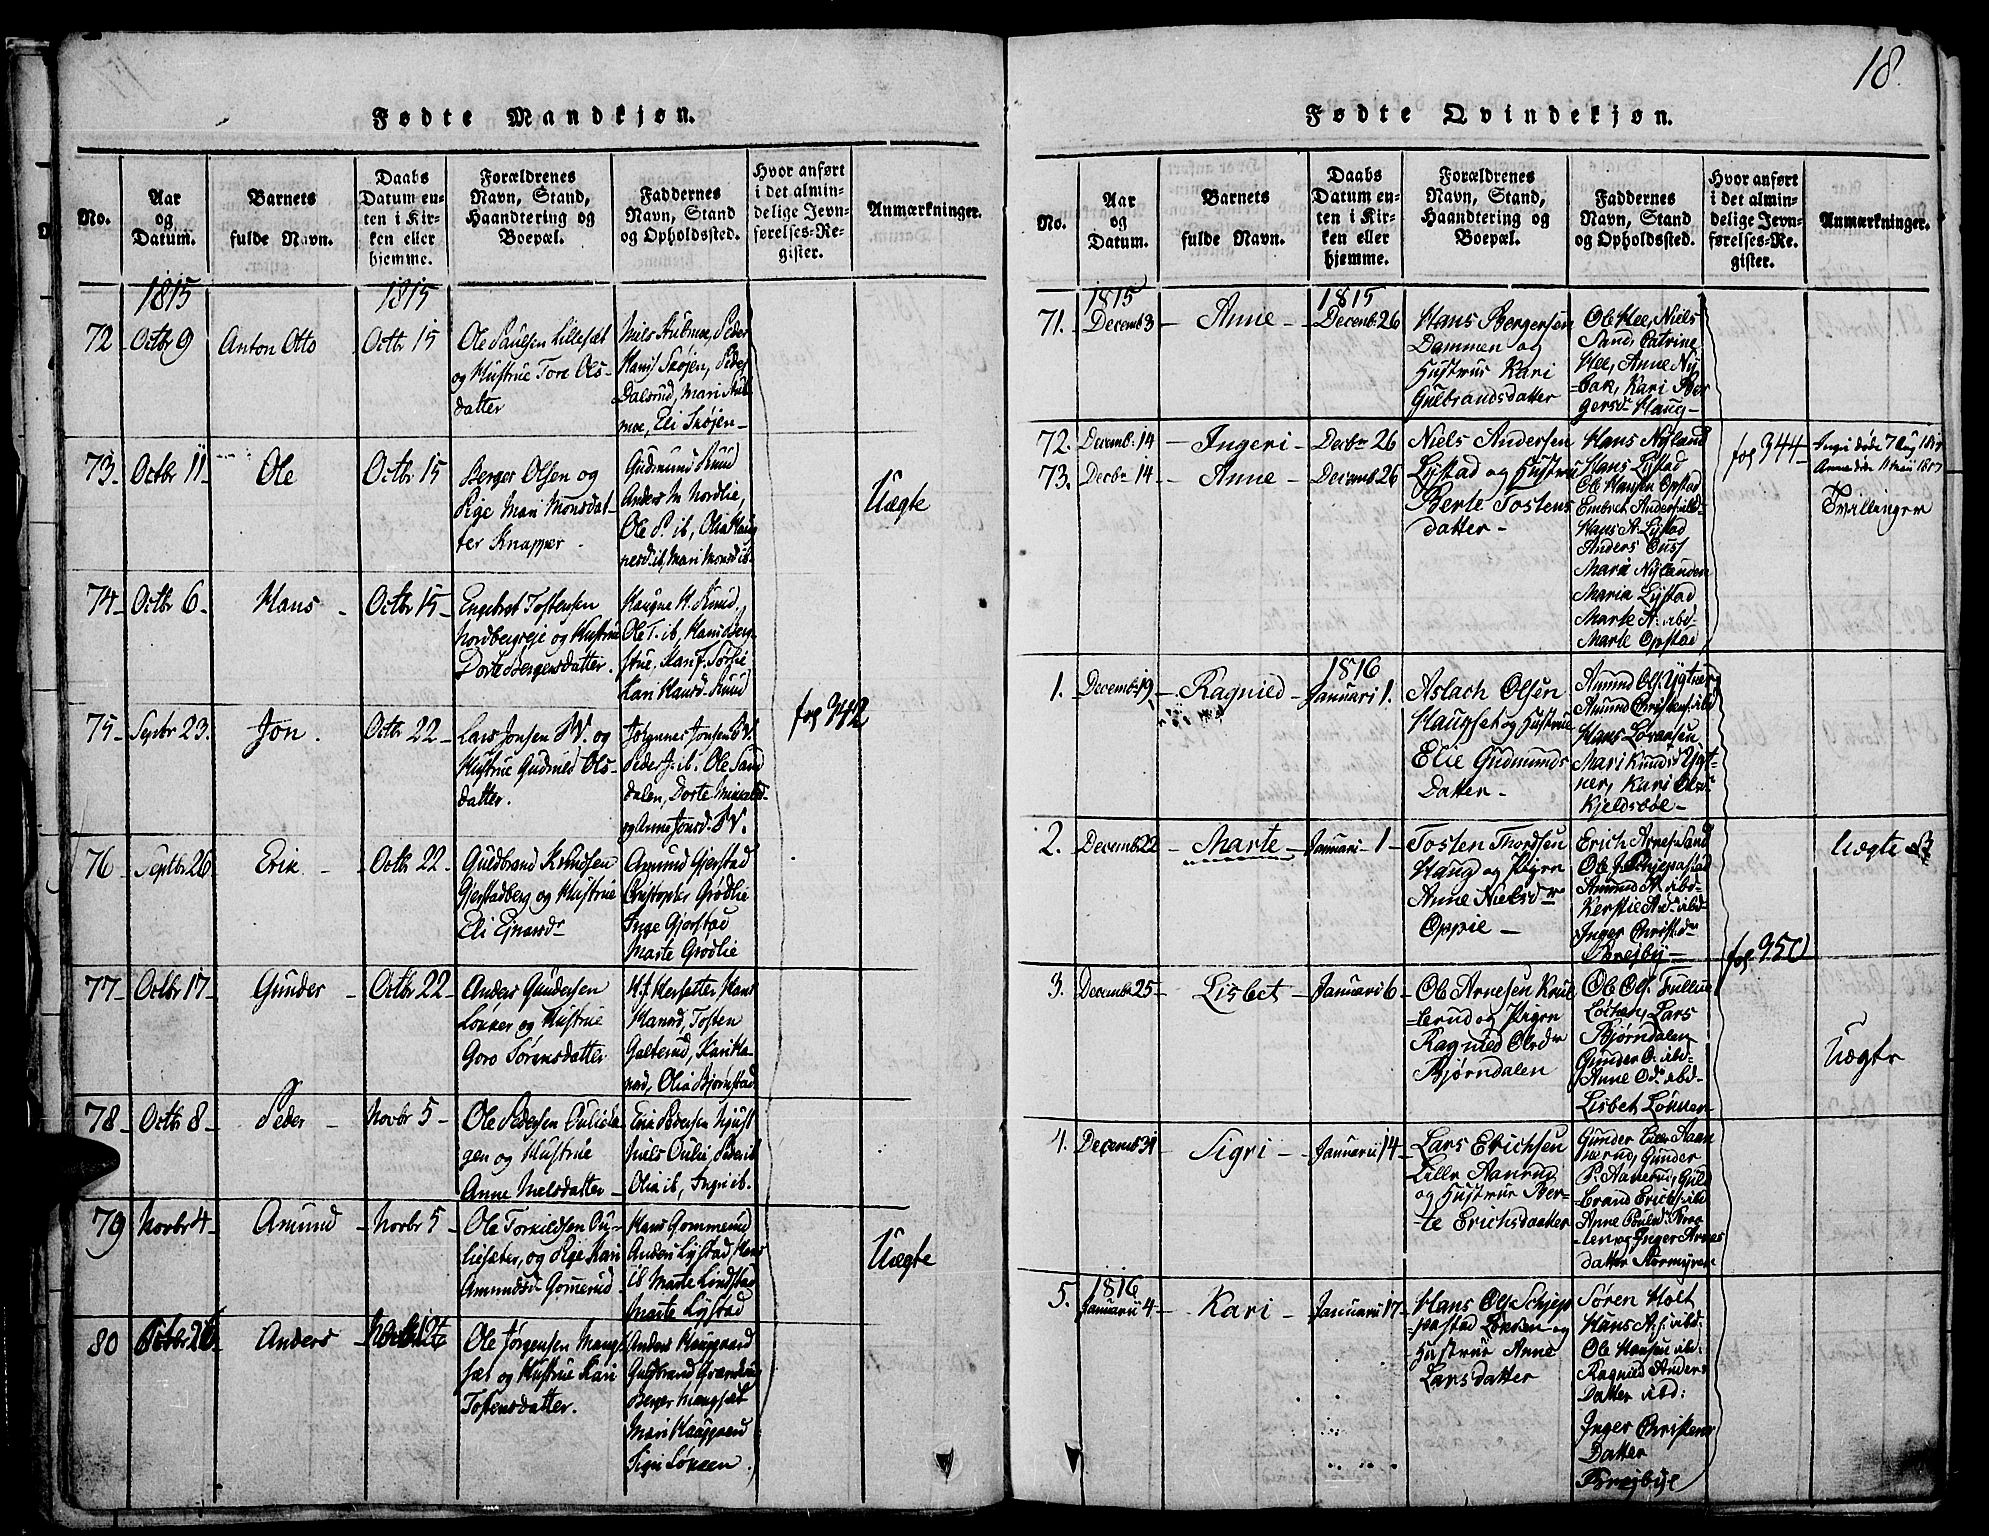 18.
Fødte Mandkjøn.
No.
Aar
og
Datum.
Barnets
fulde Navn.
Daabs
Datum en-
ten i Kir-
ken eller
hjemme.
Forældrenes
Navn, Stand,
Haandtering og
Boepæl.
Faddernes
Navn, Stand
og Opholdssted.
Hvor anført
i det almin-
delige Jevn-
førelses-Re-
gister.
Anmærkninger.
1815
1815
72
Octbr 9
Anton Otto
Octbr 15
Ole Paulsen Lillesæt
og Hustrue Tore Ols-
datter
Niels Stubmoe, Peder
Hans Skøjen, Peder
Dalsrud, Mari Stub-
moe, Eli Skøjen-
73.
Octbr 11
Ole
Octbr 15
Berger Olsen og
Pige Mari Monsdat-
ter Knapper
Gudmund Knud
Anders M Nordlie,
Ole P. ib, Olia Haug
nesd. ib, Mari Monsd ib.
Uægte
74-
Octbr 6.
Hans
Octbr 15
Engebret Tostensen
Nordbergseie og Hustrue
Dorte Bergersdatter.
Haagne H. Knud,
Ole T. ib,
Kari Hansd. Knud
75-
Septbr 23.
Jon.
Octbr 22
Lars Jonsen V. og
Hustrue Gudnied Ols-
datter.
Johannes Jonsen V.
Peder J. ib. Ole Sand
dalen, Dorte
og Anne Jonsd. V.
fog 342
76
Septbr 26
Erik
Octbr 22
Guldbrand Knudsen
Gjerstadberg og Hustrue
Eli Ejnarsdr
Amund Gjerstad
Christopher Grødlie
Inge Gjerstad
Marte Grødlie
77
Octbr 17
Gunder
Octbr 22
Anders Gundersen
Løkker og Hustrue
Goro Sørensdatter
Tosten
Galterud, Kari Ha-
nsd, Olia Bjørnstad
78
Octbr 8
Peder
Novbr 5
Ole Pedersen Oulieha-
gen og Hustrue
Anne Nielsdatter
Erik Pedersen
Niels Oulie, Peder ib
Olia ib, Ingri ib.
79
Novbr 4
Amund
Novbr 5
Ole Torkildsen Ou-
liesæter, og Pige Kari
Amundsd Gomerud
Hans Gommerud
Anders Lystad, Hans
ib Marte Lindstad
Marte Lystad
Uægte
80
Anders
Ole Jørgensen Mang-
sæt og Hustrue Kari
Tostensdatter.
Anders Kaapgaard
Guldbrand
Berger Mangsæt
Mari Kaapgaard
Sigri Løkken
Fødte Qvindekjøn.
No.
Aar
og
Datum.
Barnets
fulde Navn.
Daabs
Datum en-
ten i Kir-
ken eller
hjemme.
Forældrenes
Navn, Stand,
Haandtering og
Boepæl.
Faddernes
Navn, Stand
og Opholdssted.
Hvor anført
i det almin-
delige Jevn-
førelses-Re-
gister.
Anmærkninger.
1815
1815
71.
Decemb 3
Anne
Decemb 26
Hans Bergersen
Dammen og
Hustrue Kari
Gulbrandsdatter
Ole Hee, Niels
Sand, Catrine
Hee, Anne Ny
bak, Kari Ber
gersd. Haug-
72.
Decemb. 14
Ingeri
Decbr 26
Niels Andersen
Lystad og Hustrue
Berte Tostens
datter-
Hans Nyland
Hans Lystad
Ole Hansen Opstad
Embret Anders ibd
Hans A. Lystad
Anders
Maria Nylanden
Maria Lystad
Marte A. ibd-
Marte Opstad
fog 344
73.
Decbr 14
Anne
Decemb 26
Tvillinger
1816
1.
Decembr 19
Ragnied
Januari 1.
Aslach Olsen
Haugset og Hustrue
Elie Gudmunds
Datter-
Amund Ols. Ygtner
Amund Christens. ibd
Hans Lorensen
Mari Knudsd. Ygt-
ner, Kari Olsdr
Kjeldsbøe-
2.
Decemb 22
Marte
Januari 1
Tosten Thordsen
Haug og Pigen
Anne Nielsdr
Oppie-
Erich Arnes. Sand
Ole J. Schjepastad
Amund A. ibd-
Kerstie Andr ibd-
Inger Christdr
Brejby-
Uægte
fog 350
3.
Decemb 25
Lisbet
Januari 6
Ole Arnesen Knud
serud og Pigen
Ragnied Olsdr
Bjørndalen
Ole Ols. Fulle
Løiten, Lars
Bjørndalen
Gunder O. ibd-
Anne Odr ibd-
Lisbet Lønnen
Uægte
4.
Decemb 31
Sigri
Januari 14
Lars Erichsen
Lille Aanrud
og Hustrue Ber-
te Erichsdatter
Gunder Lille Aan
nærud, Gunder
P. Aanerud, Guld
brand Erichs. ibd
Anne Poulsd. Braa
ten og Inger Arnes
datter Stormyren
1816
5.
Januarii 4
Kari
Januari 17
Hans Ols Schjep
pastad Løkken og
Hustrue Anne
Larsdatter
Søren Holt
Hans A. ibd-
Ole Hansen ibd-
Ragnild Anders
Datter ibd:
Inger Christens
Datter
Brejbye